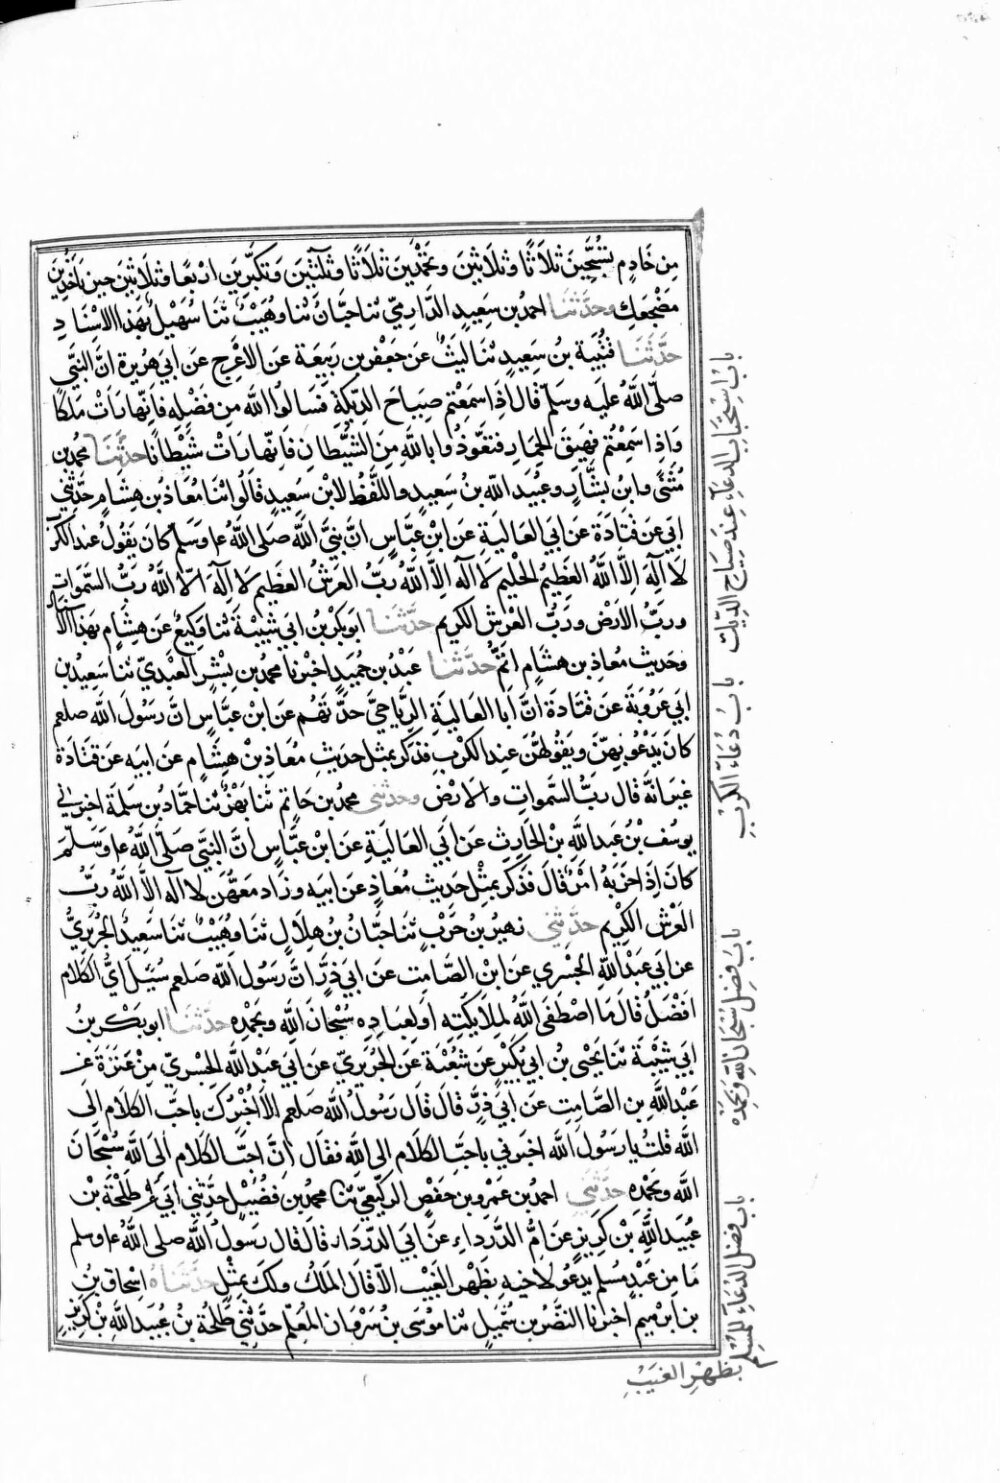 مِن خَادِمٍ تُسَبِّحِينَ ثَلَاثًا وثَلَاثِينَ وتَحْمَدِينَ ثَلَاثًا وثَلٰثِينَ وَتُكَبِّرِينَ اَرْبَعًا وَثَلَاثِينَ حِينَ تَأْخُذِينَ
مَضْجَعِكِ وحَدَّثَنَا احمد بن سَعِيدٍ الدَّارِمِيّ ثنا حَبَّانُ ثنا وُهَيْبٌ ثنا سُهَيْلٌ بِهَذا الاِسْنَادِ
حَدَّثَنَا قُتَيْبَة بن سَعِيدٍ ثنا لَيْثٌ عَن جَعْفَر بن رَبِيعَةَ عَنِ الاَعْرجِ عَن اَبِي هُرَيرة اَنَّ النَّبِيَّ
صَلَّى اللّٰهُ عَلَيهِ وسَلَّم قَالَ اِذَا سَمِعْتُم صِيَاحَ الدِّيَكَةِ فَسَالُوا اللّٰهَ مِن فَضْلِهِ فَاِنَّهَا رَاَتْ مَلَكًا
وَاِذَا سَمِعْتُم نَهِيقَ الحِمَارِ فتَعَوَّذُوا بِاللّٰهِ مِنَ الشَّيْطَانِ فَاِنَّهَا رَاَتْ شَيْطَانًا حَدَّثَنَا محمد بن
مُثَنًّى وابنُ بَشَّارٍ وعُبَيد اللّٰه بنُ سَعِيدٍ واللَّفْظُ لابْنِ سَعِيدٍ قَالُوا ثنا مُعَاذ بن هِشَامٍ حَدَّثَنِي
اَبِي عَن قَتَادَةَ عَن اَبِي العَالِيَةِ عَنِ ابْنِ عَبَّاسٍ اَنَّ نَبِيَّ اللّٰه صَلى اللّٰهُ ع‍ وَسَلَّم كَانَ يَقُولُ عِند الكَرْبِ
لَا اِلٰهَ اِلَّا اللّٰهُ العَظِيمُ الحَلِيمُ لَا اِلٰهَ اِلَّا اللّٰهُ رَبُّ العَرْشِ العَظِيمِ لَا اِلٰهَ اِلَّا اللّٰهُ رَبُّ السَّمَوَاتِ
ورَبُّ الاَرْضِ ورَبُّ العَرْشِ الكَرِيمِ حَدَّثَنَا ابو بَكْرِ بْنُ اَبِي شَيْبَةَ ثنا وَكِيعٌ عَن هِشَامٍ بِهَذا الاِسْنَادِ
وَحَدِيثُ مُعَاذِ بن هِشَامٍ اَتَمُّ حَدَّثَنَا عَبْدُ بن حُمَيدٍ اخبرنا محمد بن بِشْرٍ العَبْدِيّ ثنا سَعِيدُ بن
اَبِي عَرُوبَةَ عَن قَتَادَةَ اَنَّ اَبَا العَالِيَةِ الرِّيَاحِيَّ حَدَّثَهُم عَنِ ابْنِ عَبَّاسٍ اَنَّ رَسُولَ اللّٰه صلعم
كَانَ يَدْعُو بِهِنَّ وَيَقُولُهُنَّ عِنْدَ الكَرْبِ فَذَكَرَ بِمِثْلِ حَدِيثِ مُعَاذِ بْنِ هِشَامٍ عَن اَبِيهِ عَن قَتَادَةَ
غَيرَ اَنَّه قَالَ رَبُّ السَّمَوَاتِ وَالاَرْضِ وحَدَّثَنِي محمد بن حَاتِمٍ ثنا بَهْزٌ ثنا حَمَّادُ بن سَلَمَةَ اخبرني
يوسُفُ بْنُ عَبدِ اللّٰهِ بْنِ الحَارِثِ عَن اَبِي العَالِيَةِ عَنِ ابْنِ عَبَّاسٍ اَنَّ النَّبِيَّ صَلَّى اللّٰهُ ع‍ وَسَلَّمَ
كَانَ اِذَا حَزَبَهُ اَمْرٌ قَالَ فَذَكَرَ بِمِثْلِ حَدِيثِ مُعَاذٍ عَن اَبِيهِ وزَادَ مَعَهُنَّ لَا اِلٰهَ اِلَّا اللّٰهُ رَبُّ
العَرْشِ الكَرِيمِ حَدَّثَنِي زهَيرُ بن حَرْبٍ ثنا حَبَّانُ بْنُ هِلَالٍ ثنا وُهَيْبٌ ثنا سَعِيدٌ الجُرَيرِيُّ
عَن اَبِي عَبْدِ اللّٰهِ الجَسْرِي عَنِ ابْنِ الصَّامِتِ عَن اَبِي ذَرٍّ اَنَّ رَسُولَ اللّٰهِ صلعم سُئِلَ اَيُّ الكَلَامِ
اَفْضَلُ قَالَ مَا اصْطَفَى اللّٰهُ لِملَائِكَتِهِ اَو لِعِبَادِهِ سُبْحَانَ اللّٰهِ وَبِحَمْدِهِ حَدَّثَنَا ابو بَكْرِ بنُ
اَبِي شَيْبَةَ ثنا يَحْيَى بن اَبِي بُكَيْرٍ عَن شُعْبَةَ عَنِ الجُرَيْرِيّ عَن اَبِي عَبْدِ اللّٰهِ الجَسْرِيّ مِنْ عَنَزَةَ عَن
عَبْدِ اللّٰهِ بنِ الصَّامِتِ عَن اَبِي ذَرٍّ قَالَ قَالَ رَسُولُ اللّٰه صلعم اَلَا اُخْبِرُكَ بِاَحَبِّ الكَلَامِ اِلَى
اللّٰه قُلتُ يَا رَسُولَ اللّٰه اخبرني بِاَحَبِّ الكَلَامِ اِلى اللّٰه فقَالَ اِنَّ اَحَبَّ الكَلَامِ اِلَى اللّٰه سُبْحَانَ
اللّٰه وبِحَمْدِهِ حَدَّثَنِي احمد بن عمر بن حَفْصٍ الوَكِيعِيّ ثنا محمد بن فُضَيْلٍ حَدَّثَنِي اَبِي عَن طَلْحَةَ بْن
عُبَيدِ اللّٰهِ بْنِ كَرِيزٍ عَن اُمِّ الدَّردَاءِ عَن اَبِي الدَّردَاءِ قَالَ قَالَ رَسُولُ اللّٰه صَلى اللّٰه ع‍ وسلم
مَا مِن عَبْدٍ مُسلِمٍ يَدعُو لاَخِيهِ بِظَهْرِ الغَيْبِ اِلَّا قَالَ المَلَكُ ولَكَ بِمِثْلٍ حَدَّثَنَاهُ اِسْحَاق بْنُ
بن ابرهيم اخبرنا النَّضرُ بن شُمَيلٍ ثنا مُوسَى بن سَرْوَان المُعَلِّم حَدَّثَنِي طَلْحَةُ بْنُ عُبَيدِ اللّٰهِ بْنِ كَرِيزٍ
باب استحباب الدعاء عند صياح الديك
باب دُعَاء الكرب
باب فضل سُبْحَانَ اللّٰه وبحمده
باب فضل الدعاء للمسلمين
بظهر الغيب